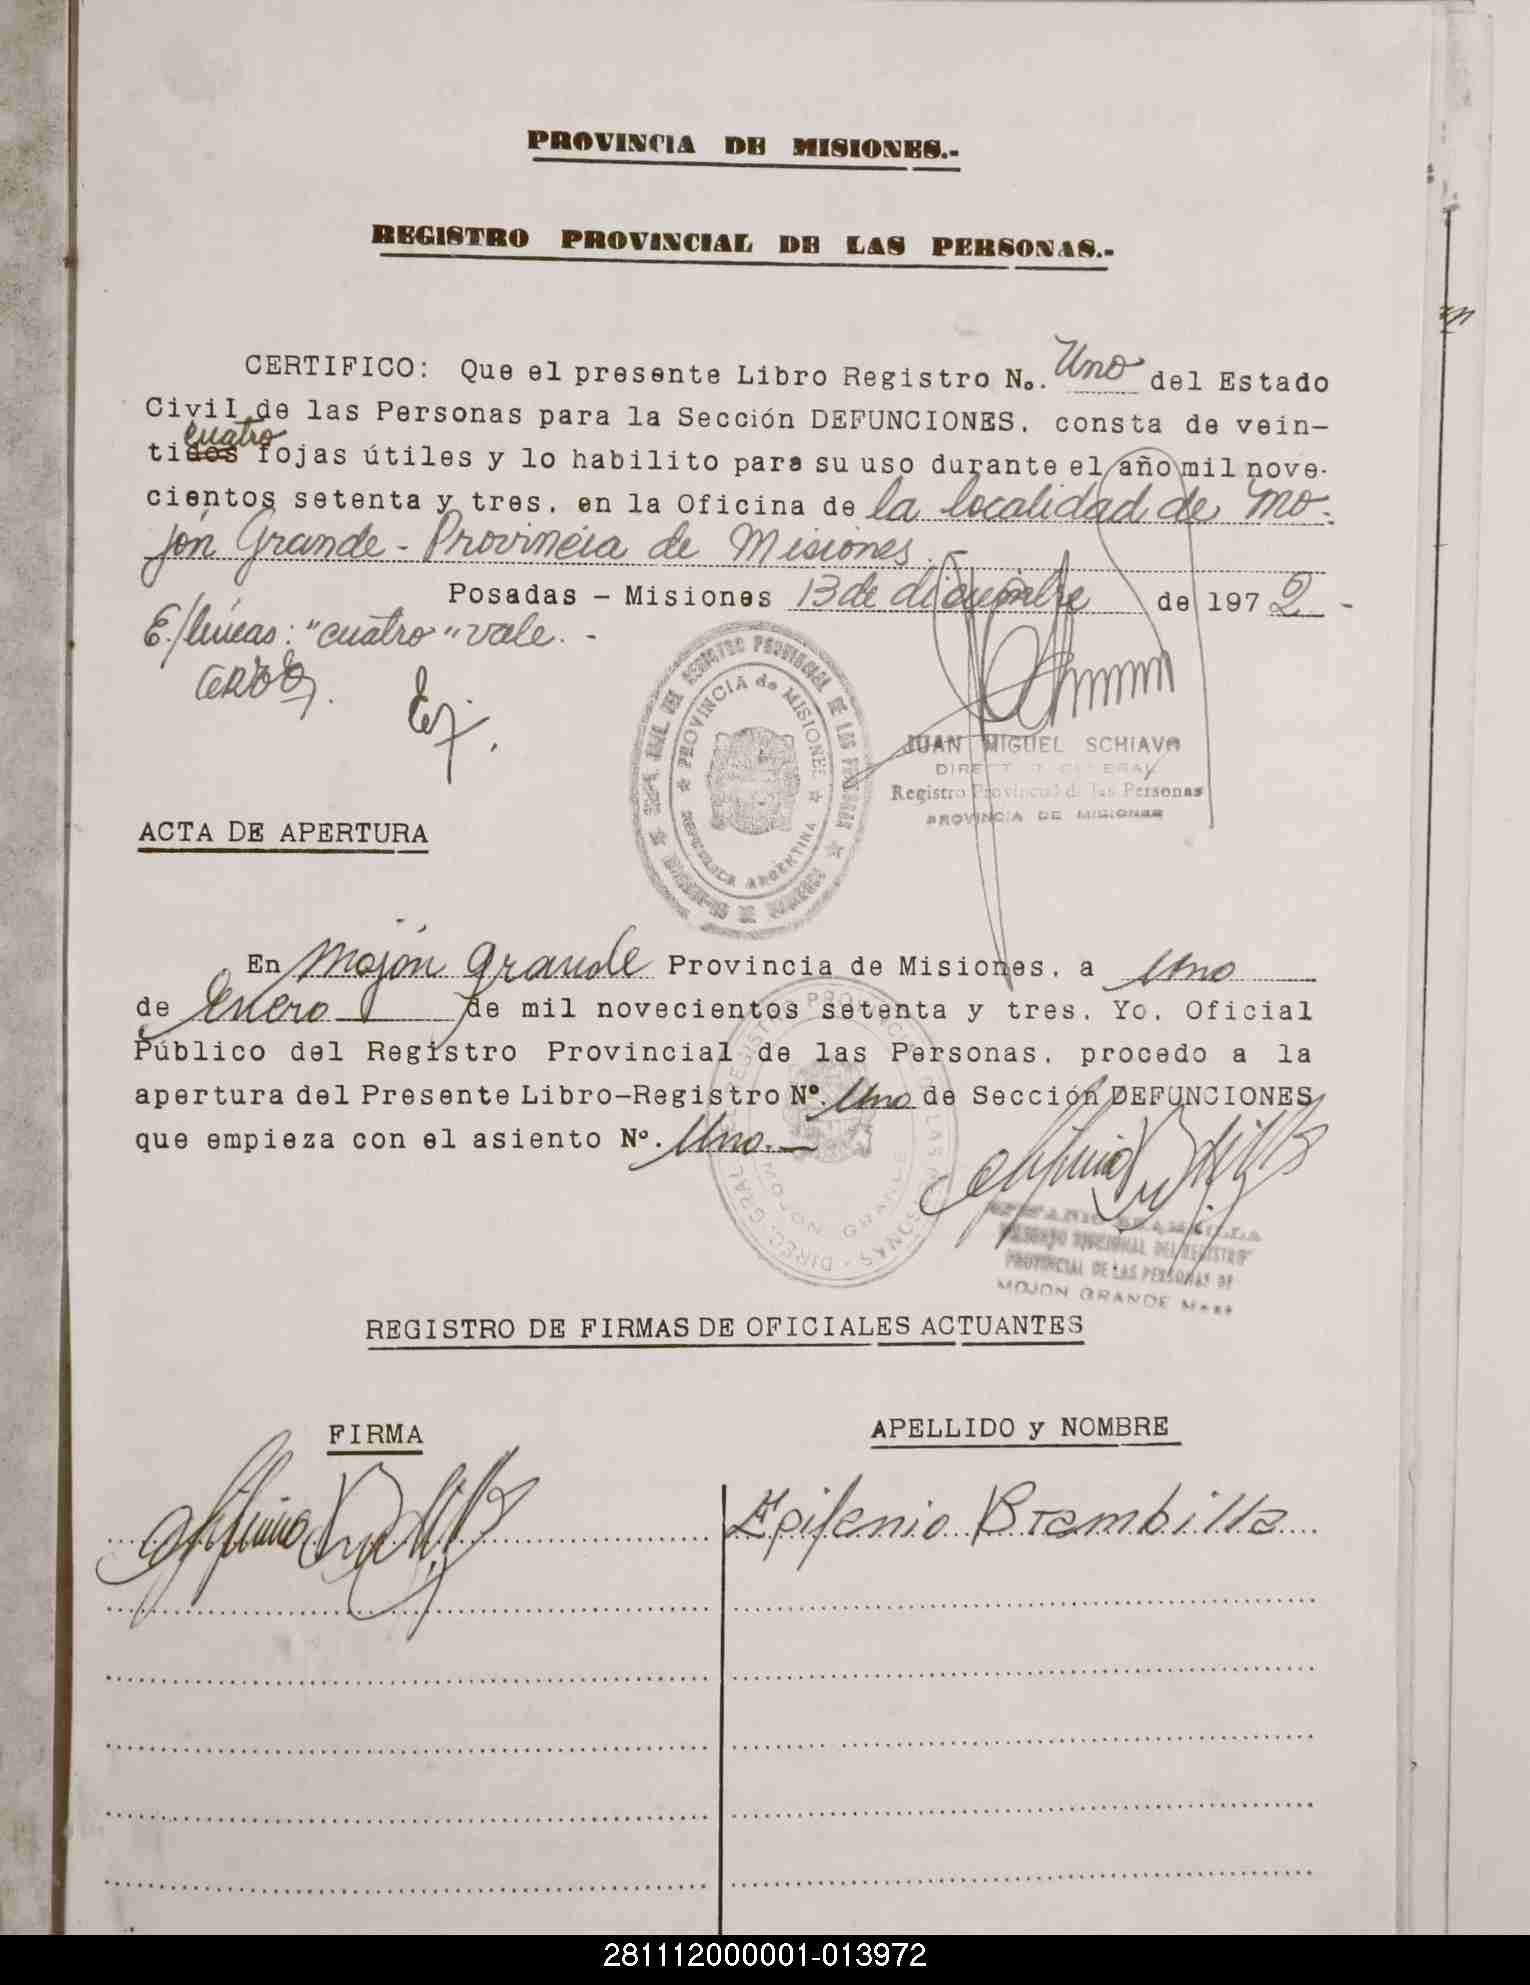 PROVINCIA DE MISIONES.-
REGISTRO PROVINCIAL DE LAS PERSONAS.-
CERTIFICO: Que el presente Libro Registro No. Uno del Estado
Civil de las Personas para la Sección DEFUNCIONES, consta de vein-
cuatro
tidos fojas útiles y lo habilito para su uso durante el año mil nove-
cientos setenta y tres, en la Oficina de la localidad de Mo-
jón Grande - Provincia de Misiones.
Posadas - Misiones 13 de diciembre de 1972 -
E./líneas: "cuatro" vale. -
JUAN MIGUEL SCHIAVO
DIRECTOR GENERAL
Registro Provincial de las Personas
PROVINCIA DE MISIONES
PROVINCIA de MISIONES
REPUBLICA ARGENTINA
ACTA DE APERTURA
En Mojón Grande Provincia de Misiones, a Uno
de Enero de mil novecientos setenta y tres. Yo, Oficial
Público del Registro Provincial de las Personas, procedo a la
apertura del Presente Libro-Registro Nº. Uno de Sección DEFUNCIONES
que empieza con el asiento Nº. Uno.-
DIREC. GRAL. DEL REGISTRO PROVINCIAL DE LAS PERSONAS
MOJON GRANDE
PROVINCIAL DE LAS PERSONAS DE
MOJON GRANDE Mnes
REGISTRO DE FIRMAS DE OFICIALES ACTUANTES
FIRMA APELLIDO y NOMBRE
Epifenio Brambilla
281112000001-013972